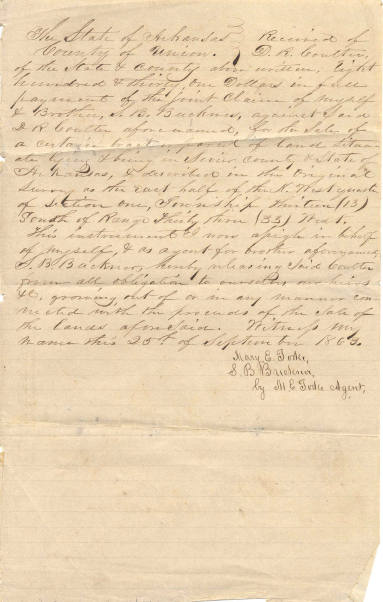 The State of Arkansas } Received of
County of Union. } D. R. Coulter,
of the State & County above written, Eight
hundred & thirty one Dollars in full
payment of the joint Claim of myself
& Brother, S. B. Buckner, against said
D R Coulter aforenamed, for the Sale of
a certain tract or parcel of land situ
ate lying & being in Sevier county & State of
Arkansas, & described in the original
Survey as the East half of the N. West quarter
of Section one, Township thirteen (13)
South of Range Thirty three (33) West.
This instrument I now assign in behalf
of myself, & as agent for brother aforenamed,
S. B. Buckner, hereby releasing said Coulter
from all obligation to ourselves our heirs
&c, growing out of or in any manner con
nected with the proceeds of the Sale of
the lands aforesaid. Witness my
name this 25th of September 1863.
Mary E.
S. B. Buckner,
by M E Agent,